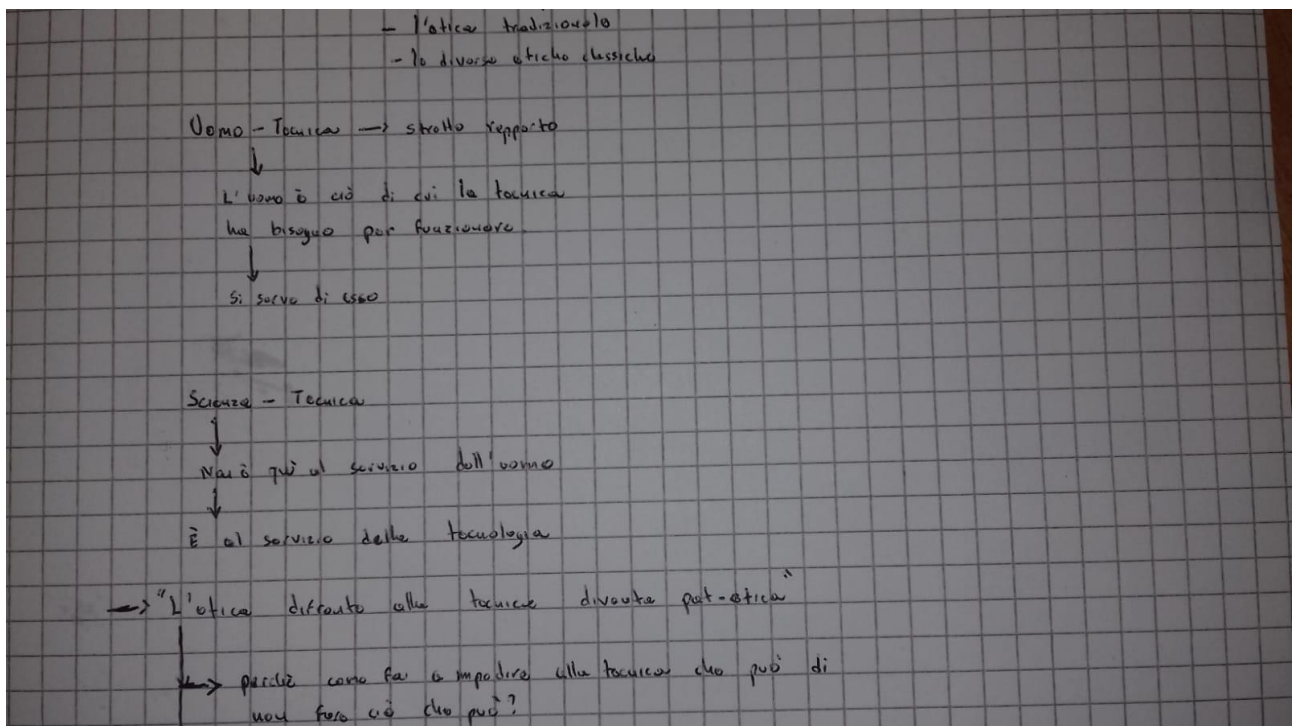 - l'etica tradizionale
- le diverse etiche classiche
Uomo - Tecnica → stretto rapporto
↓
L'uomo è ciò di cui la tecnica
ha bisogno per funzionare.
↓
Si serve di esso
Scienza - Tecnica
↓
Non è più al servizio dell'uomo
↓
È al servizio della tecnologia
→ "L'etica difronte alla tecnica diventa pat-etica"
→ perché come fa a impedire alla tecnica che può di
non fare ciò che può?